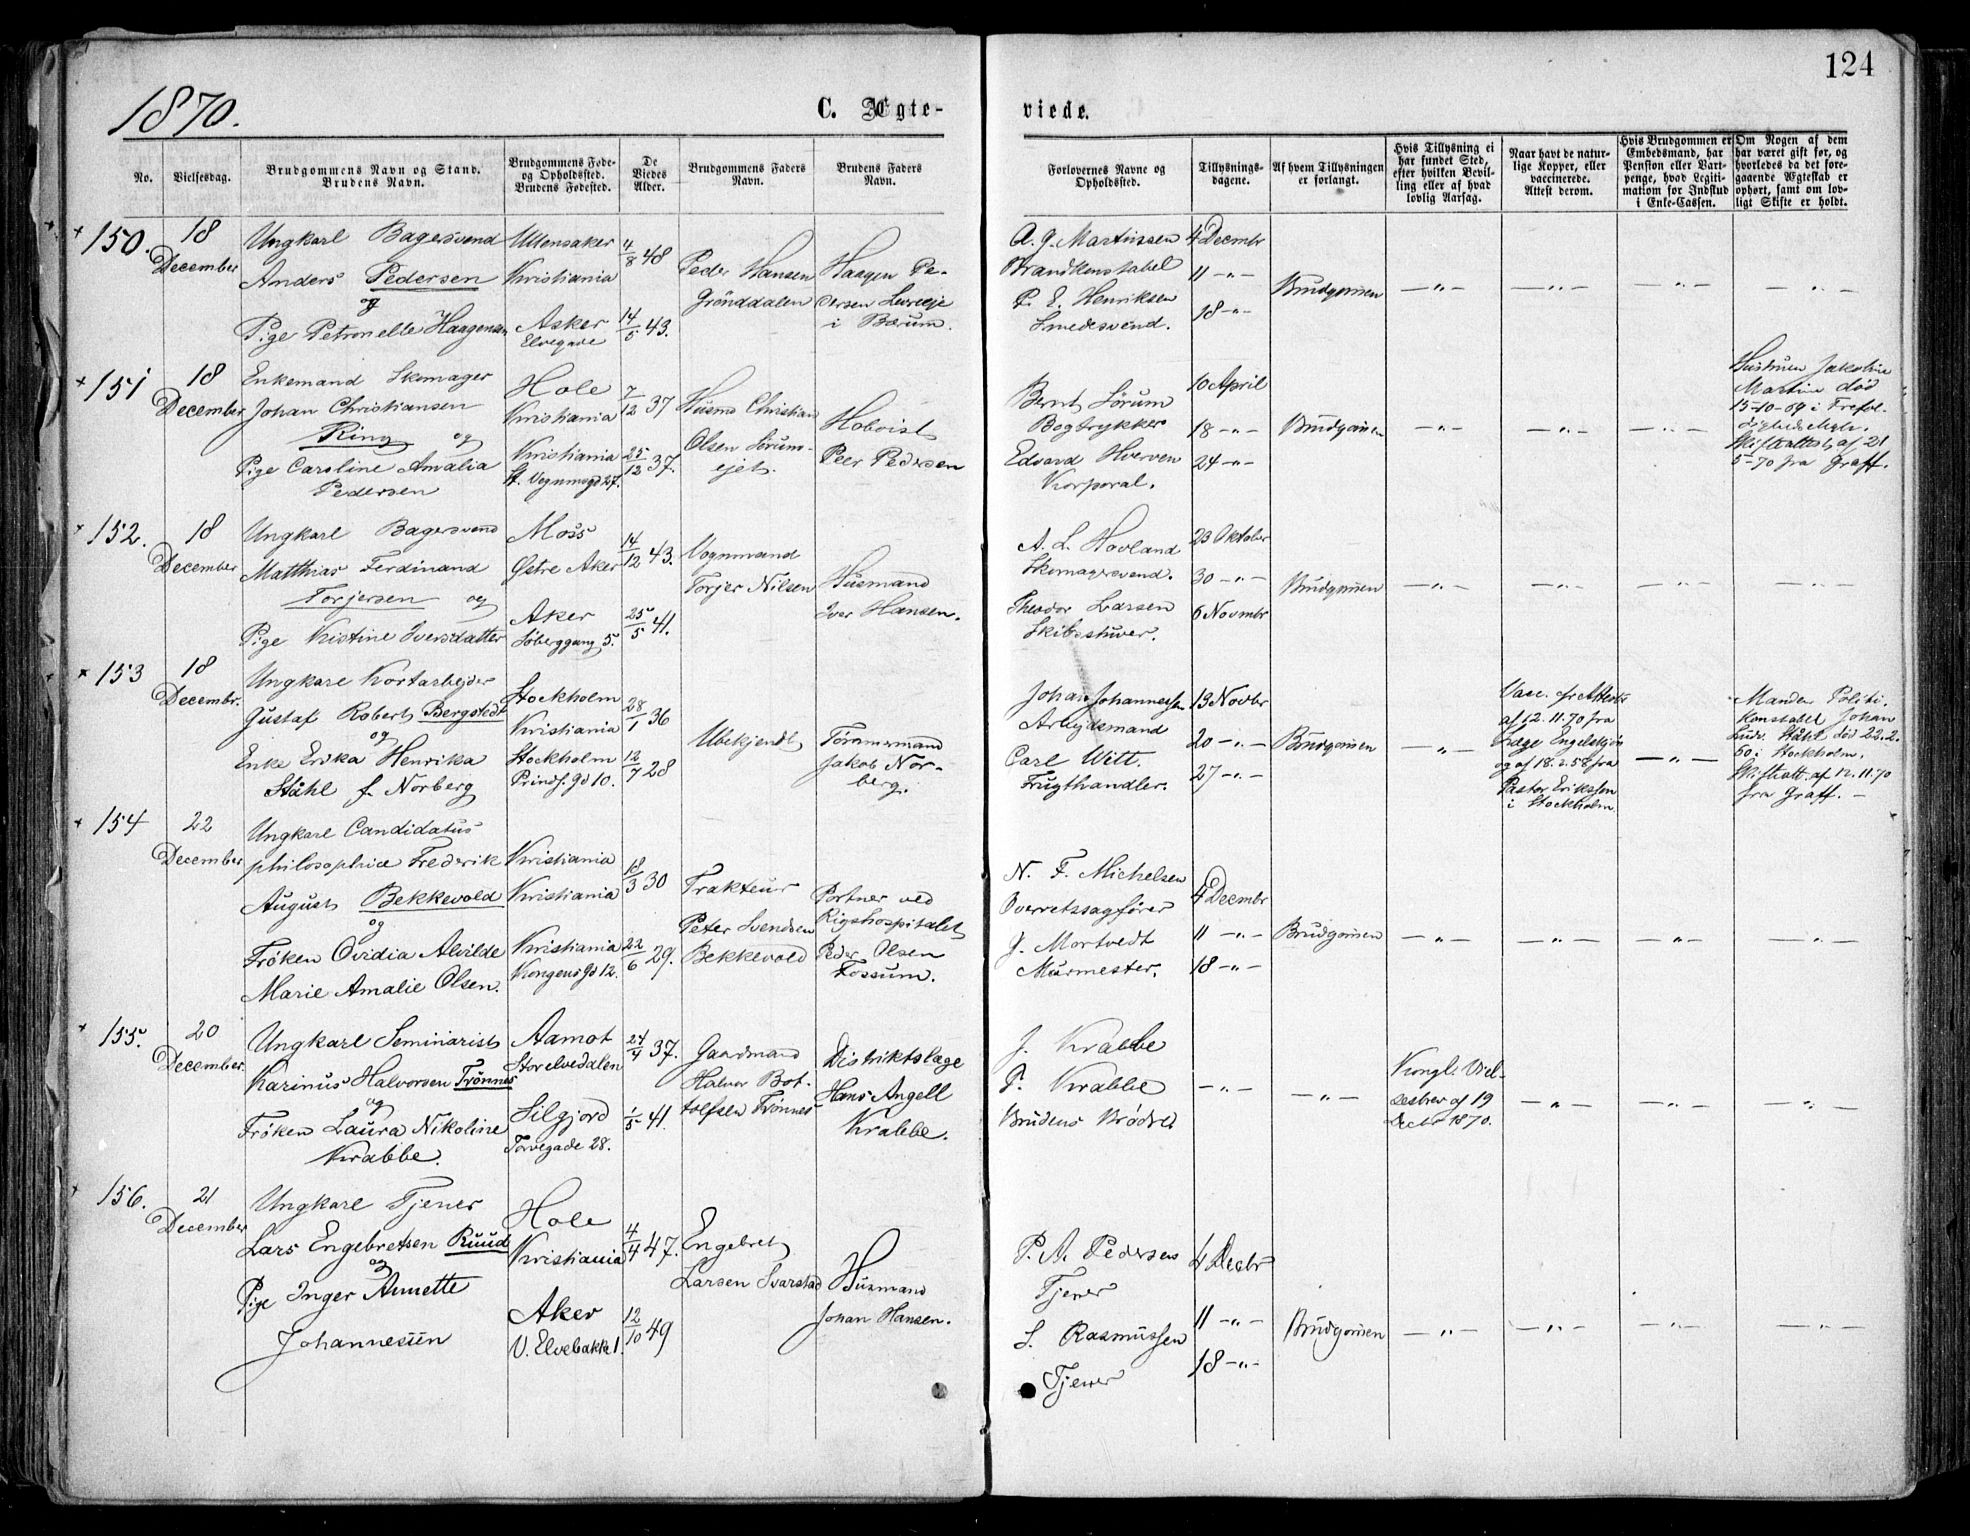 124
1870.
C. Ægte-
viede.
No.
Vielsesdag.
Brudgommens Navn og Stand.
Brudens Navn.
Brudgommens Føde-
og Opholdssted.
Brudens Fødested.
De
Viedes
Alder.
Brudgommens Faders
Navn.
Brudens Faders
Navn.
Forlovernes Navne og
Opholdssted.
Tillysnings-
dagene.
Af hvem Tillysningen
er forlangt.
Hvis Tillysning ei
har fundet Sted,
efter hvilken Bevil-
ling eller af hvad
lovlig Aarsag.
Naar havt de natur-
lige Kopper, eller
vaccinerede.
Attest derom.
Hvis Brudgommen er
Embedsmand, har
Pension eller Vart-
penge, hvad Legiti-
mation for Indskud
i Enke-Cassen.
Om Nogen af dem
har været gift før, og
hvorledes da det fore-
gaaende Ægteskab er
ophørt, samt om lov-
ligt Skifte er holdt.
150.
18
December
Ungkarl Bagersvend
Anders Pedersen
og
Pige Petronelle Haagensen
Ullensaker
Kristiania
Asker
Elvegade
4/8 48
14/5 43.
Peder Hansen
Grönddalen
Haagen Pe-
dersen
i Bærum.
A. G. Martinssen
Brandkonstabel
P. E. Henriksen
Smedesvend.
4 Decembr
11 —"—
18 —"—
Brudgomen
—"—
—"—
—"—
—"—
151
18
December
Enkemand Skomager
Johan Christiansen
Ring og
Pige Caroline Amalia
Pedersen
Hole
Kristiania
Kristiania
St. Vognmgd 27.
7/12 37
25/12 37.
Husmd Christian
Olsen Sörum-
ejet.
Hoboist
Peer Pedersen
Bernt Sörum
Bogtrykker
Edvard Hverven
Korporal.
10 April
18 —"—
24 —"—
Brudgomen
—"—
—"—
—"—
Hustruen Jakobine
Martin død
15-10-69 i Trefol-
dighedsMgh.
Skifteattest af 21
5-70 fra Graff.
152.
18
December
Ungkarl Bagersvend
Matthias Ferdinand
Torjersen og
Pige Kristine Iversdatter
Moss
Østre Aker
Aker
Söberggang 5.
14/12 43.
25/5 41.
Vognmand
Torjer Nilsen
Husmand
Iver Hansen.
A. L. Hovland
Skomagersvend.
Theodor Larsen
Skibsstuver.
23 Oktober
30 —"—
6 Novmbr
Brudgomen
—"—
—"—
—"—
—"—
153
18
Decembr.
Ungkarl Kortarbejder
Gustaf Robert Bergstedt
og
Enke Erika Henrika
Ståhl f. Norberg
Stockholm
Kristiania
Stockholm
Prinds. Gd 10.
28/1 36
12/7 28
Ubekjendt
Jakob Nor-
berg.
Johan Johannessen
Arbejdsmand
Carl Witt.
Frugthandler.
13 Novbr
20 —"—
27 —"—
Brudgomen
—"—
Vacc. efr Attester
af 12.11.70 fra
Læge Engelskjön
og af 18.2.58 fra
Pastor Erikssen
i Stockholm
—"—
Manden Politi-
konstabel Johan
Ludv. Ståhl død 22.2.
60 i Stockholm.
Skifteatt. af 12.11.70
fra Graff. —
154
22
December
Ungkarl Candidatus
philosophiæ Frederik
August Bekkevold
og
Fröken Ovidia Alvilde
Marie Amalie Olsen.
Kristiania
Kristiania
Kristiania
Kongens Gd 12.
18/3 30
22/6 29.
Trakteur
Peter Svendsen
Bekkevold
Portner ved
Rigshospitalet
Peder Olsen
Fossum.
N. F. Michelsen
Overretssagförer
J. Mortvedt
Murmester.
4 Decembr
11 —"—
18 —"—
Brudgomen
—"—
—"—
—"—
—"—
155.
20
December
Ungkarl Seminarist
Karinus Halvorsen Trönnes
og
Fröken Laura Nikoline
Krabbe.
Aamot
Storelvedalen
Silgjord
Torvegade 28.
24/4 37.
1/5 41.
Gaardmand
Halvor Bot-
tolfsen Trönnes
Distriktslæge
Hans Angell
Krabbe.
J. Krabbe
P. Krabbe
Brudens Brødre
—"—
—"—
Kongl. Viel-
sesbrev af 19
Decbr 1870.
—"—
—"—
—"—
156.
21
December
Ungkarl Tjener
Lars Engebretsen Ruud
og
Pige Inger Annette
Johannesen
Hole
Kristiania
Aker
V. Elvebakke 1.
4/4 47.
12/10 49
Engebret
Larsen Svarstad
Husmand
Johan Hansen.
P. A. Pedersen
Tjener
L. Rasmussen
Tjener
4 Decbr
11 —"—
18 —"—
Brudgomen
—"—
—"—
—"—
—"—